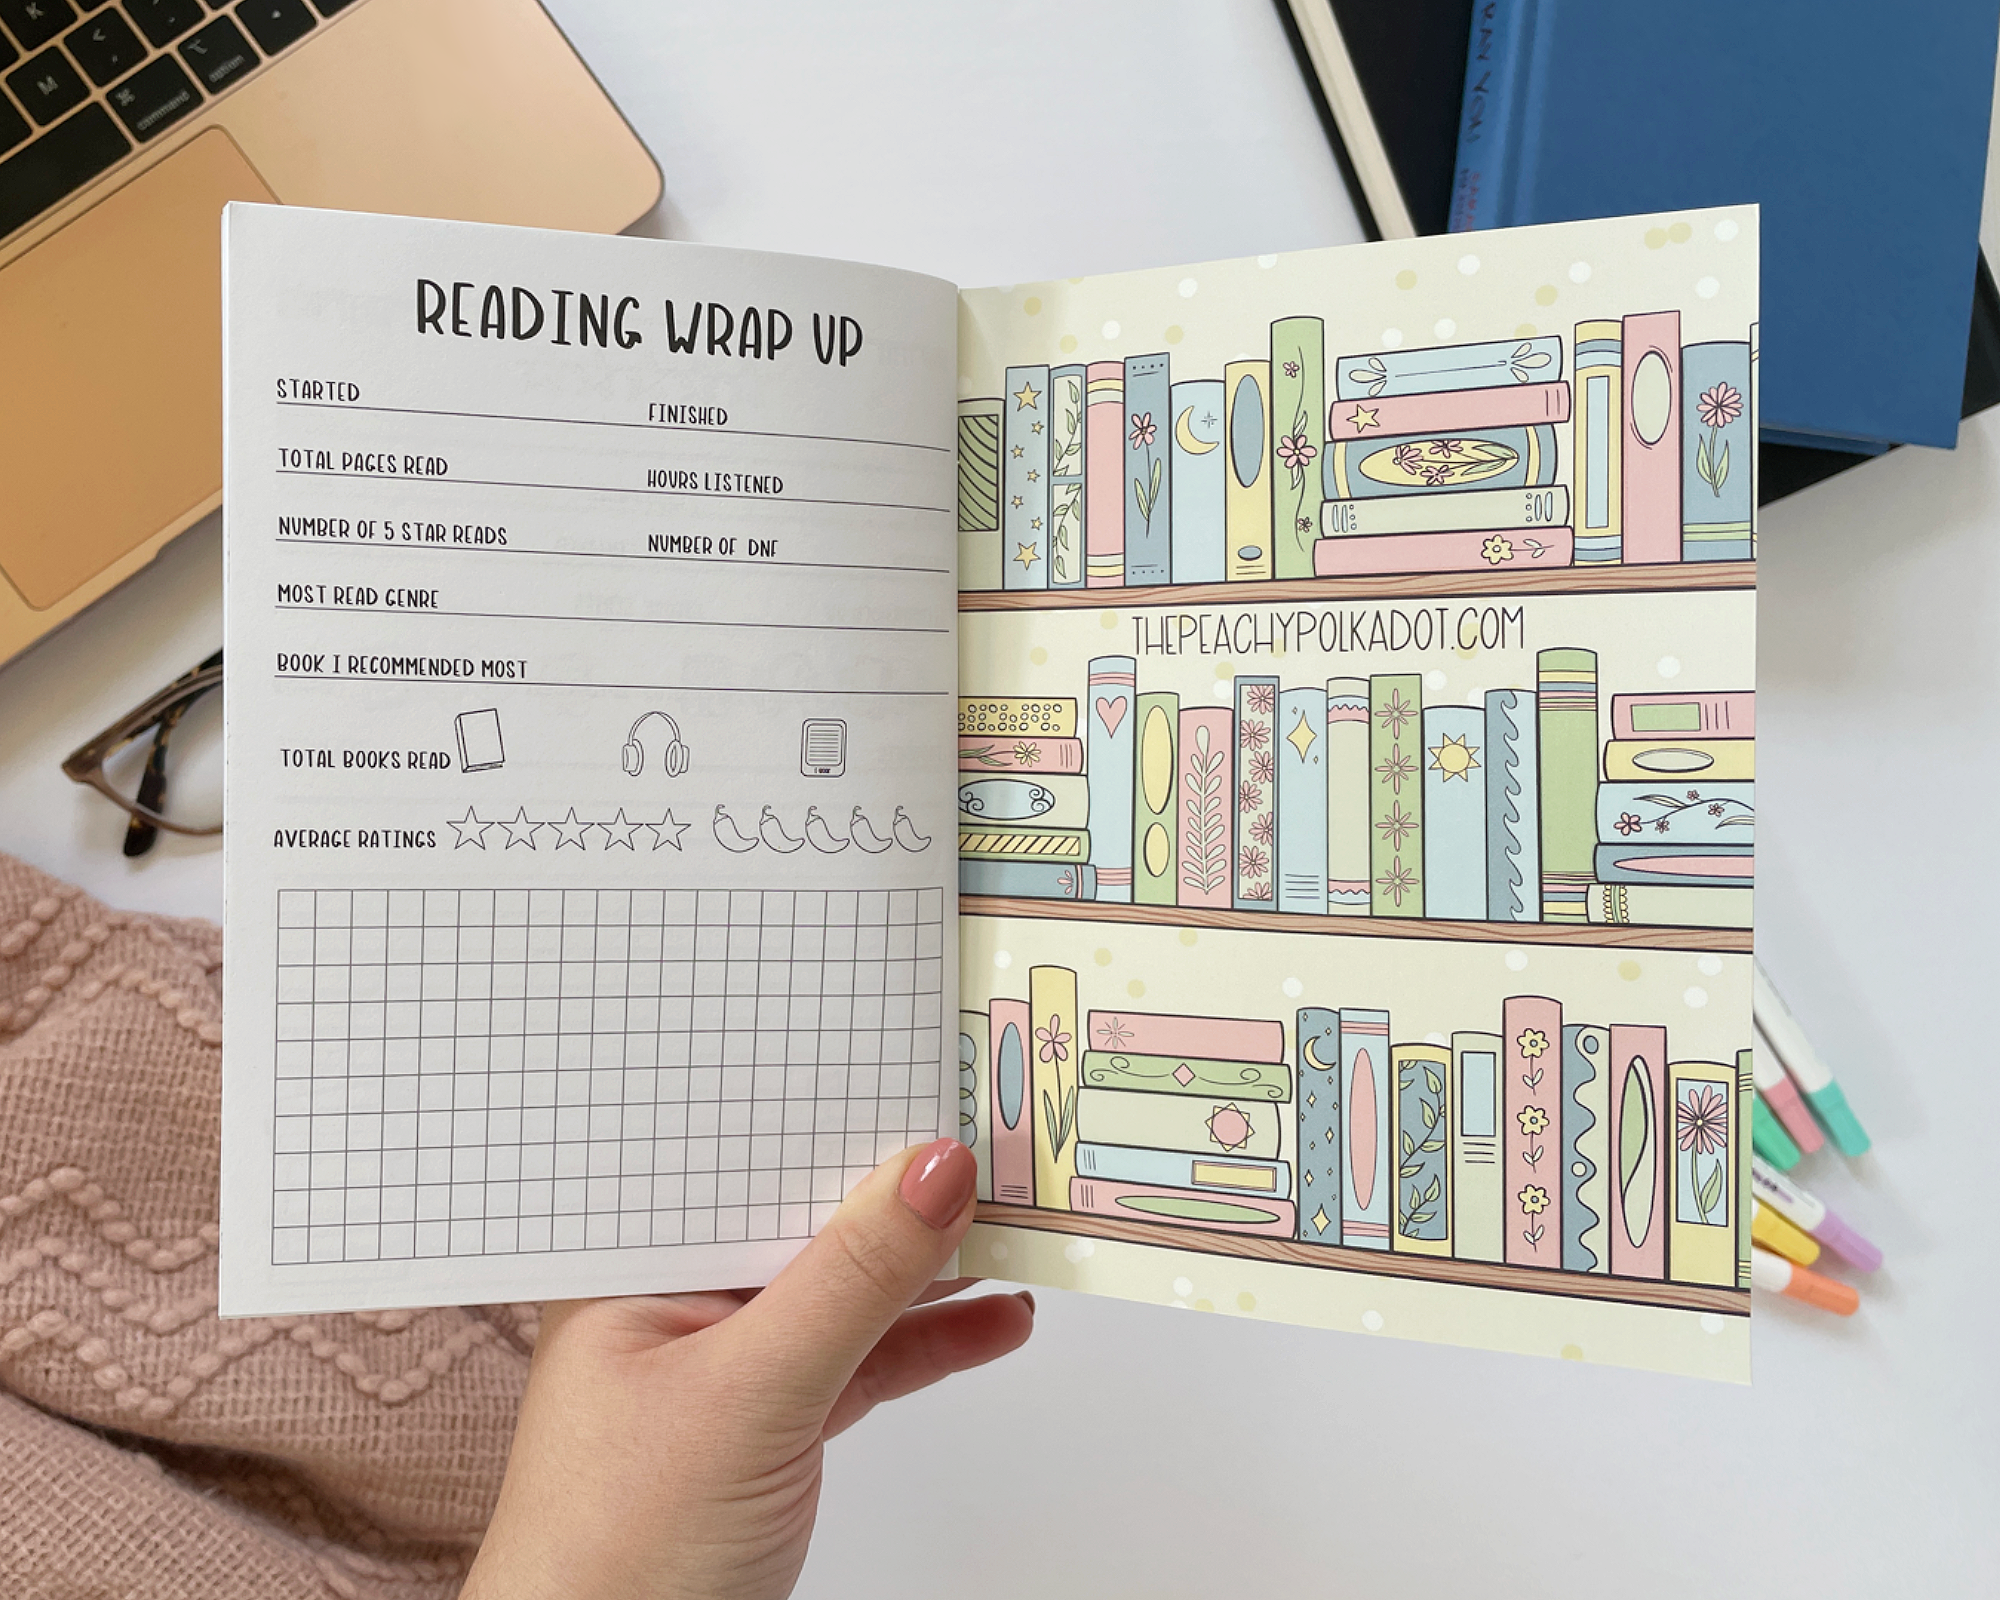 K
<
M
⌘
command
⌥
option
READING WRAP UP
STARTED
FINISHED
TOTAL PAGES READ
HOURS LISTENED
NUMBER OF 5 STAR READS
NUMBER OF DNF
MOST READ GENRE
BOOK I RECOMMENDED MOST
TOTAL BOOKS READ
AVERAGE RATINGS
THEPEACHYPOLKADOT.COM